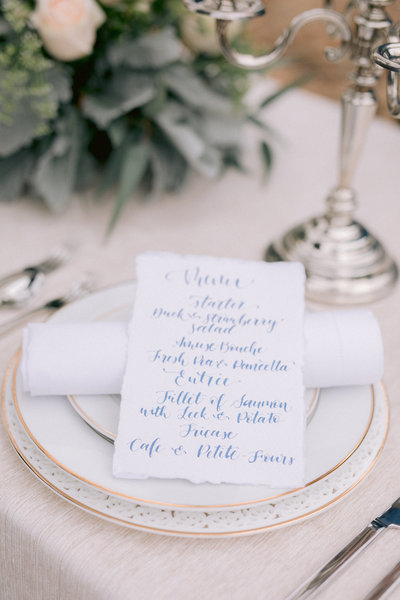 Menu
Starter
Duck & Strawberry
Salad
Amuse Bouche
Fresh Pea & Pancella
Entrée
Fillet of Saumon
with Leek & Potato
Fricase
Cafe & Petite-Fours